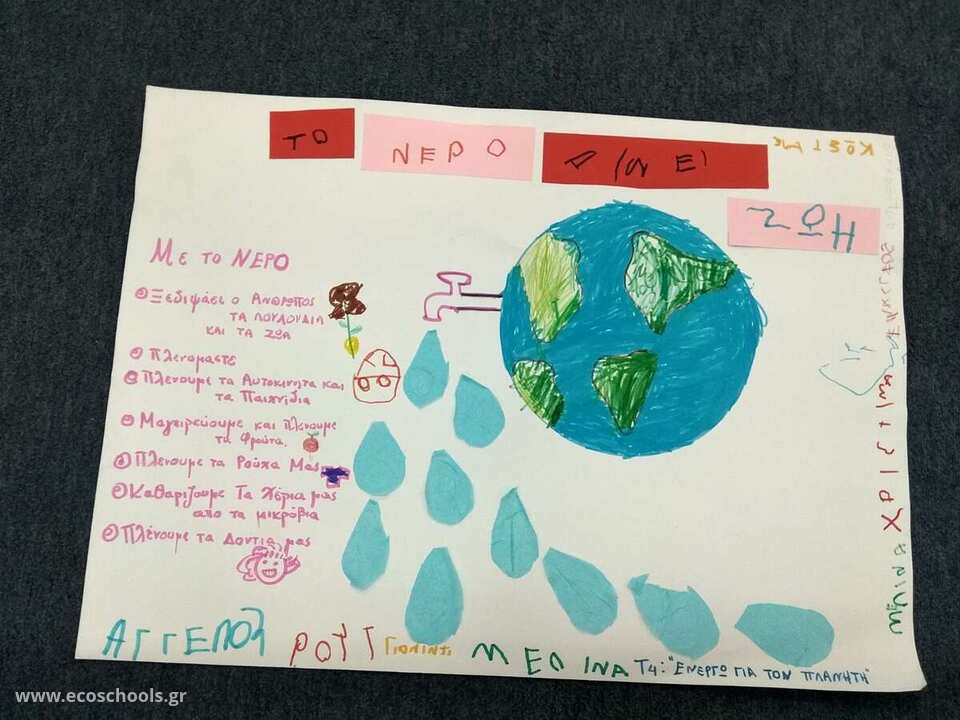 ΤΟ ΝΕΡΟ ΔΙΝΕΙ
ΖΩΗ
ΚΩΣΤΗΣ
Με το ΝΕΡΟ
Ξεδιψάει ο Ανθρωπος
τα λουλούδια
και τα Ζωα
Πλενομαστε
Πλενουμε τα Αυτοκινητα και
τα Παιχνίδια
Μαγειρεύουμε και πλενουμε
τα Φρούτα.
Πλενουμε τα Ρούχα Μας
Καθαριζουμε Τα Χέρια μας
απο τα μικρόβια
Πλένουμε τα Δοντια μας
ΑΓΓΕΛΟΣ
ΓΙΟΛΙΝΤΙ
ΜΕΛΙΝΑ
Τ4: "ΕΝΕΡΓΩ ΓΙΑ ΤΟΝ ΠΛΑΝΗΤΗ"
www.ecoschools.gr